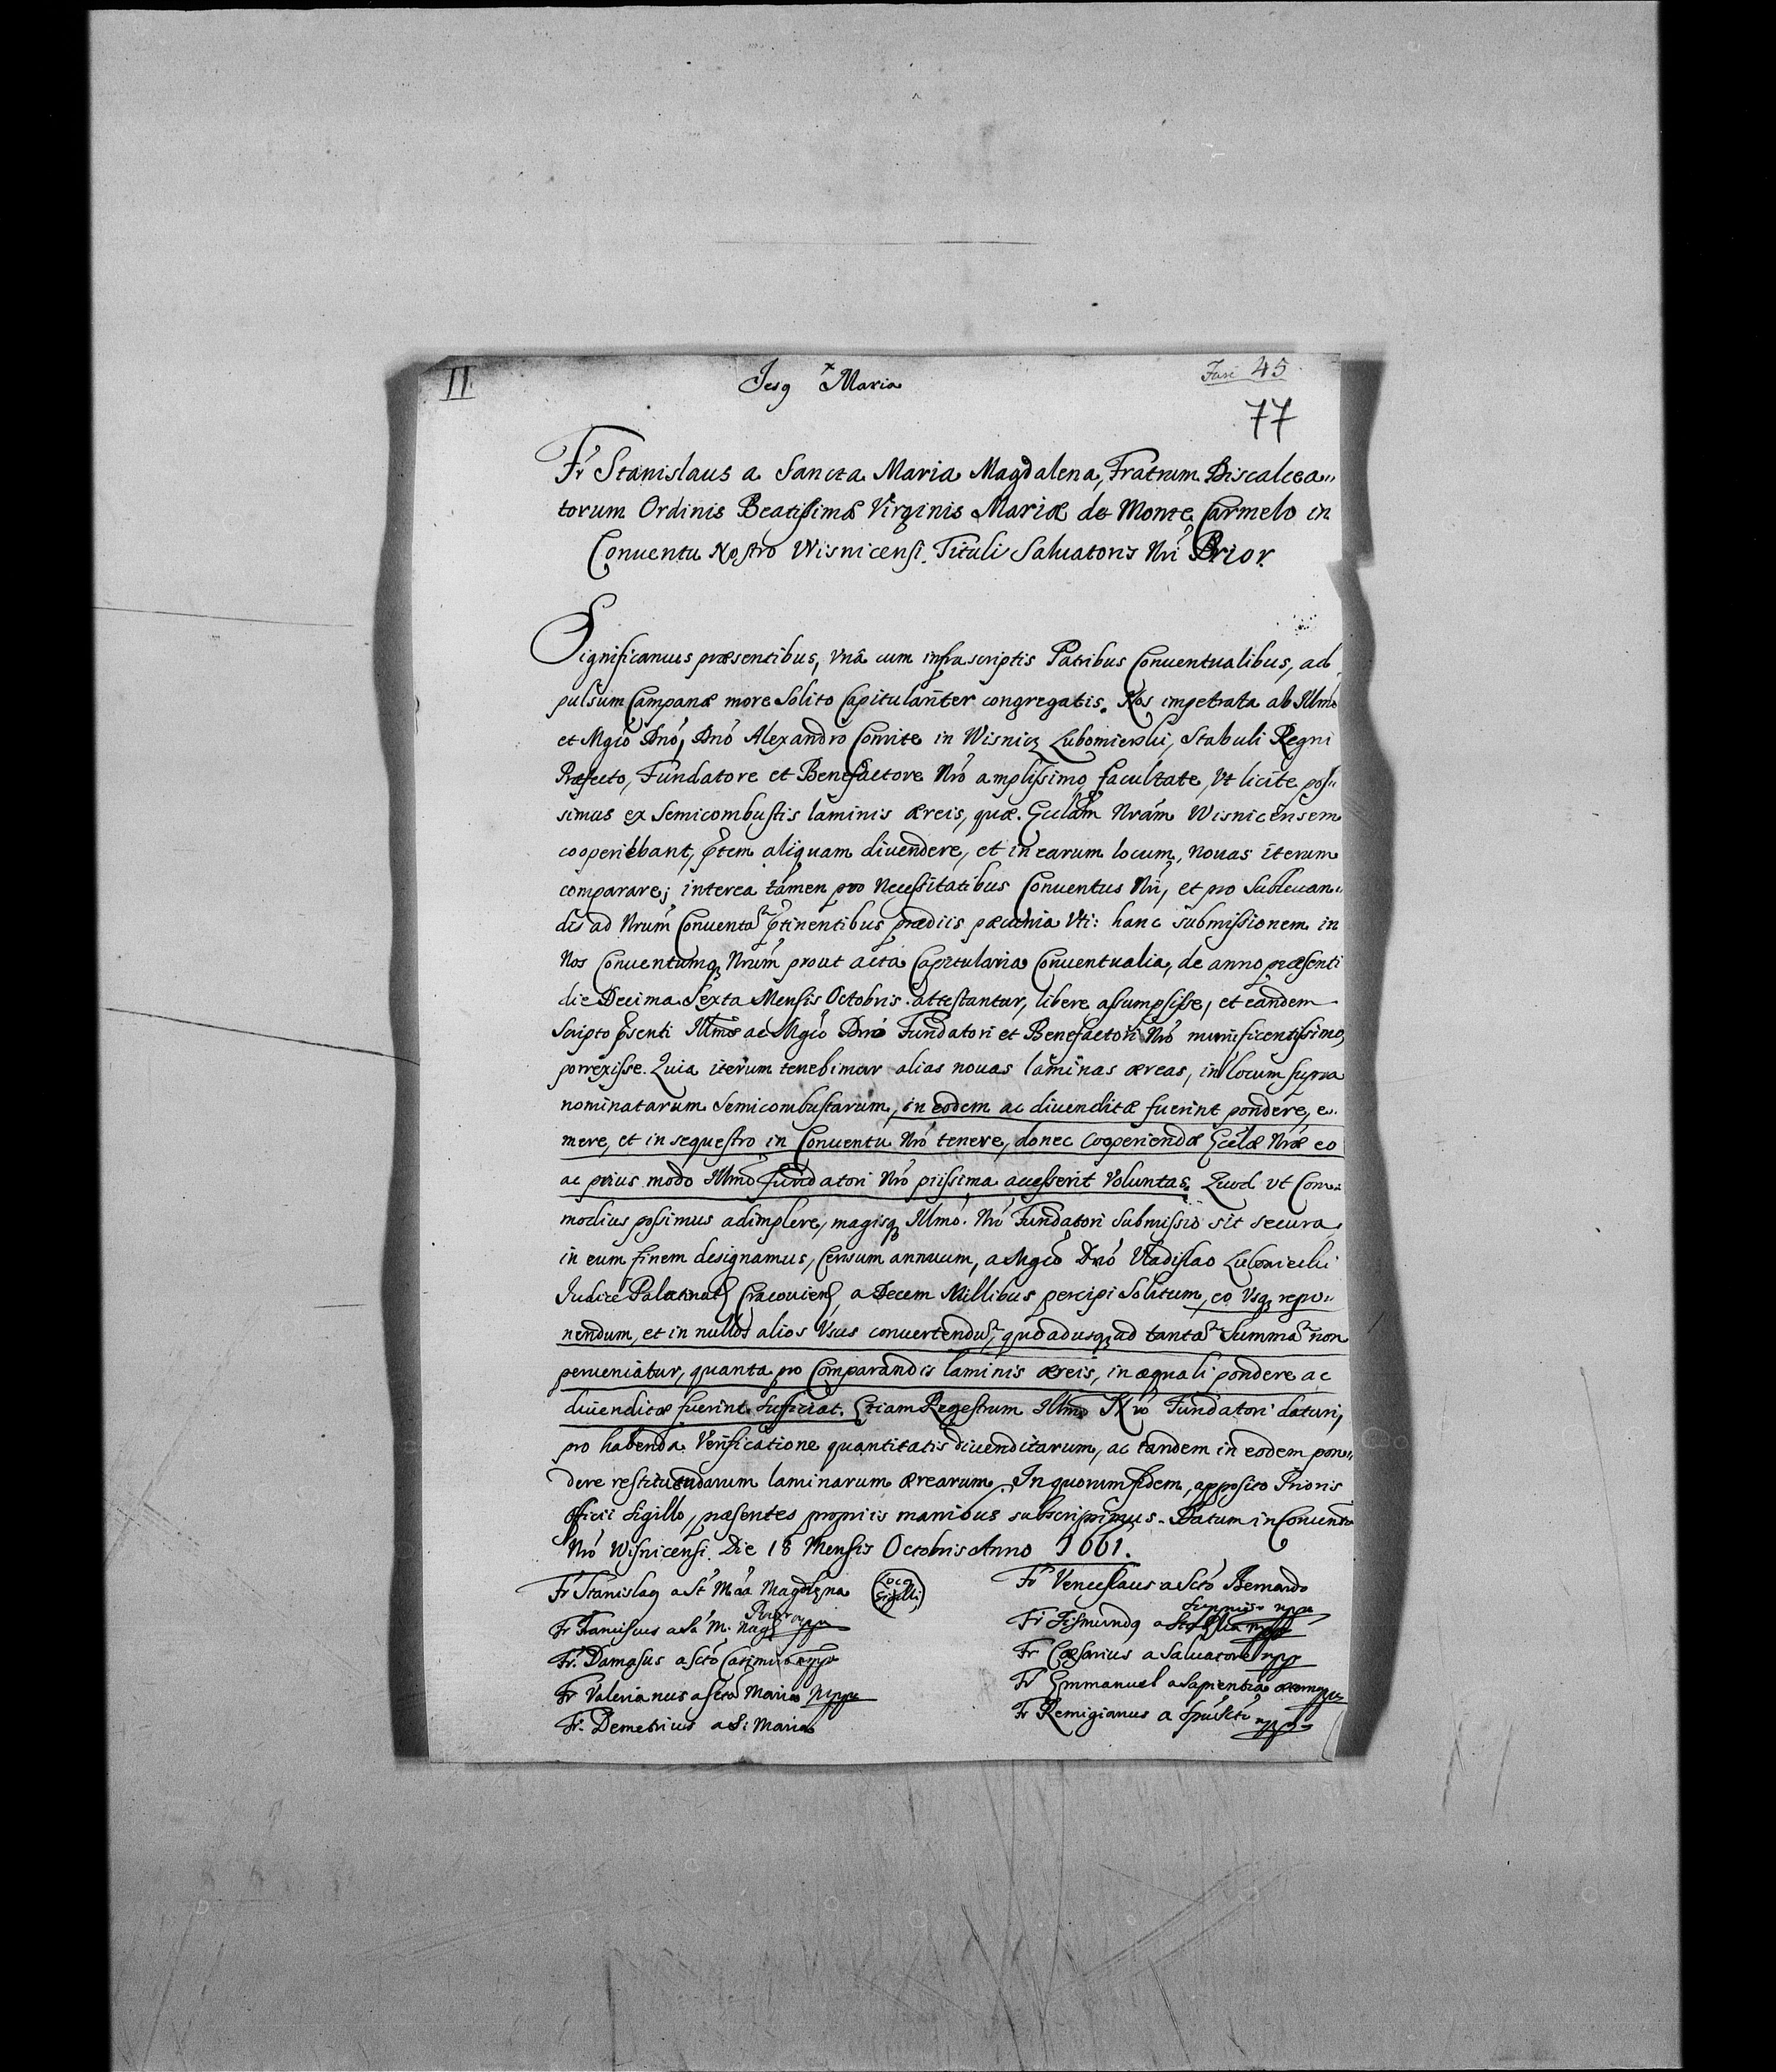 II
Jesq + Maria
Fasc 45
77
Fr Stanislaus a Sancta Maria Magdalena, Fratrum Discalcea„
torum Ordinis Beatissimæ Virginis Mariæ de Monte Carmelo in
Conuentu Nostro Wisnicensi Tituli Saluatoris Nri Prior.
Significamus præsentibus, vnâ cum infrascriptis Patribus Conuentualibus, ad
pulsum Campanæ more Solito Capitularíter congregatis. Nos impetrata ab Illmo
et Mgco Dno, Dno Alexandro Comite in Wisnicz Lubomierski, Stabuli Regni
Præfecto, Fundatore et Benefactore Nro amplissimo, facultate, Vt licite pos„
simus ex Semicombustis laminis æreis, quæ Ecclam Nram Wisnicensem
cooperiebant, ptem aliquam diuendere, et in earum locum, nouas iterum
comparare; interea tamen pro Necessitatibus Conuentus Nri, et pro Subleuan„
dis ad Nrum Conuentū ptinentibus prædiis pæcunia Vti: hanc submissionem in
Nos Conuentumq Nrum prout acta Capitularia Conuentualia, de anno præsenti
die Decima Sexta Mensis Octobris attestantur, libere assumpsisse, et eandem
Scripto Psenti Illmo ac Mgco Dno Fundatori et Benefactori Nro munificentissimo,
porrexisse. Quia iterum tenebimur alias nouas laminas æreas, in locum supra
nominatarum Semicombustarum, in eodem ac diuenditæ fuerint pondere, e„
mere, et in sequestro in Conuentu Nro tenere, donec Cooperiendæ Eclæ Nræ eo
ac prius modo Illmo fundatori Nro piissima accesserit Voluntas. Quod vt Com„
modius possimus adimplere, magisq Illmo Nro Fundatori Submissio sit secura,
in eum finem designamus, Censum annuum, a Mgco Dno Vladislao Lubomierski
Judice Palatinatq Cracouienq, a Decem Millibus percipi Solitum, eo Vsq repo„
nendum, et in nullos alios Vsus conuertendū, quoadusq ad tantā Summā non
perueniatur, quanta pro Comparandis laminis æreis, in æquali pondere ac
diuenditæ fuerint sufficiat. Etiam Regestrum Illmo Nro Fundatori daturi,
pro habenda Verificatione quantitatis diuenditarum, ac tandem in eodem pon„
dere restituendarum laminarum ærearum. In quorum fidem, apposito Prioris
officii Sigillo, præsentes propriis manibus subscripsimus. Datum in Conuentu
Nro Wisnicensi. Die 18 Mensis Octobris Anno 1661.
Fr Stanislaq a St Maa Magdalena
Prior
Loco
Sigilli
Fr Venceslaus a Scto Bernardo
Supprior mpp
Fr Franciscus a Sa M. Magd mpp
Fr Sismundq a Sto Elia mpp
Fr. Damasus a Scto Casimiro mpp
Fr Cæsarius a Saluatore mpp
Fr Valerianus a Scta Maria mpp
Fr Emmanuel a Sapientia mpp
Fr. Demetrius a S. Maria
Fr Remigianus a Spu Scto mpp